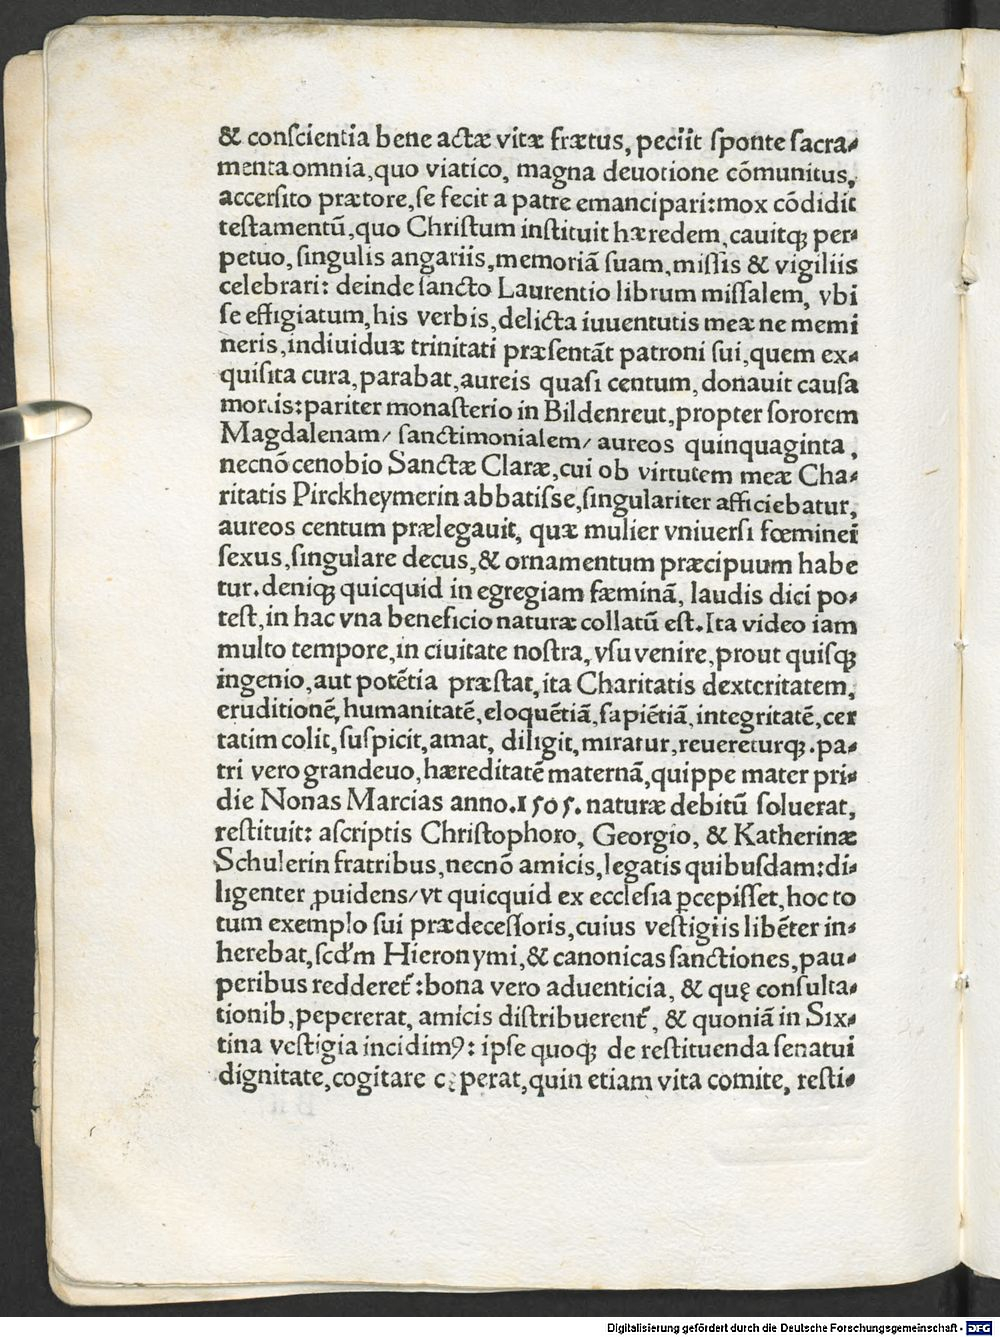 & conſcientia bene actæ vitæ frætus, peciit ſponte ſacra-
menta omnia, quo viatico, magna deuotione cōmunitus,
accerſito prætore, ſe fecit a patre emancipari: mox cōdidit
teſtamentū, quo Chriſtum inſtituit hæredem, cauitqꝫ per-
petuo, ſingulis angariis, memoriā ſuam, miſſis & vigiliis
celebrari: deinde ſancto Laurentio librum miſſalem, vbi
ſe effigiatum, his verbis, delicta iuuentutis meæ ne memi
neris, indiuiduæ trinitati præſentāt patroni ſui, quem ex-
quiſita cura, parabat, aureis quaſi centum, donauit cauſa
mortis: pariter monaſterio in Bildenreut, propter ſororem
Magdalenam/ ſanctimonialem/ aureos quinquaginta,
necnō cenobio Sanctæ Claræ, cui ob virtutem meæ Cha-
ritatis Pirckheymerin abbatiſse, ſingulariter afficiebatur,
aureos centum prælegauit, quæ mulier vniuerſi fœminei
ſexus, ſingulare decus, & ornamentum præcipuum habe
tur. deniqꝫ quicquid in egregiam fæminā, laudis dici po-
teſt, in hac vna beneficio naturæ collatū eſt. Ita video iam
multo tempore, in ciuitate noſtra, vſu venire, prout quiſqꝫ
ingenio, aut potētia præſtat, ita Charitatis dexteritatem,
eruditionē, humanitatē, eloquētiā, ſapiētiā, integritatē, cer
tatim colit, ſuſpicit, amat, diligit, miratur, reuereturqꝫ. pa-
tri vero grandeuo, hæreditatē maternā, quippe mater pri-
die Nonas Marcias anno. 1505. naturæ debitū ſoluerat,
reſtituit: aſcriptis Chriſtophoro, Georgio, & Katherinæ
Schulerin fratribus, necnō amicis, legatis quibuſdam: di-
ligenter ꝓuidens/ vt quicquid ex eccleſia ꝑcepiſſet, hoc to
tum exemplo ſui prædeceſſoris, cuius veſtigiis libēter in-
herebat, ſcd'm Hieronymi, & canonicas ſanctiones, pau-
peribus redderet᷑: bona vero aduenticia, & quę conſulta-
tionib, pepererat, amicis diſtribuerent᷑, & quoniā in Six-
tina veſtigia incidimꝰ: ipſe quoqꝫ de reſtituenda ſenatui
dignitate, cogitare cęperat, quin etiam vita comite, reſti-
Digitalisierung gefördert durch die Deutsche Forschungsgemeinschaft - DFG